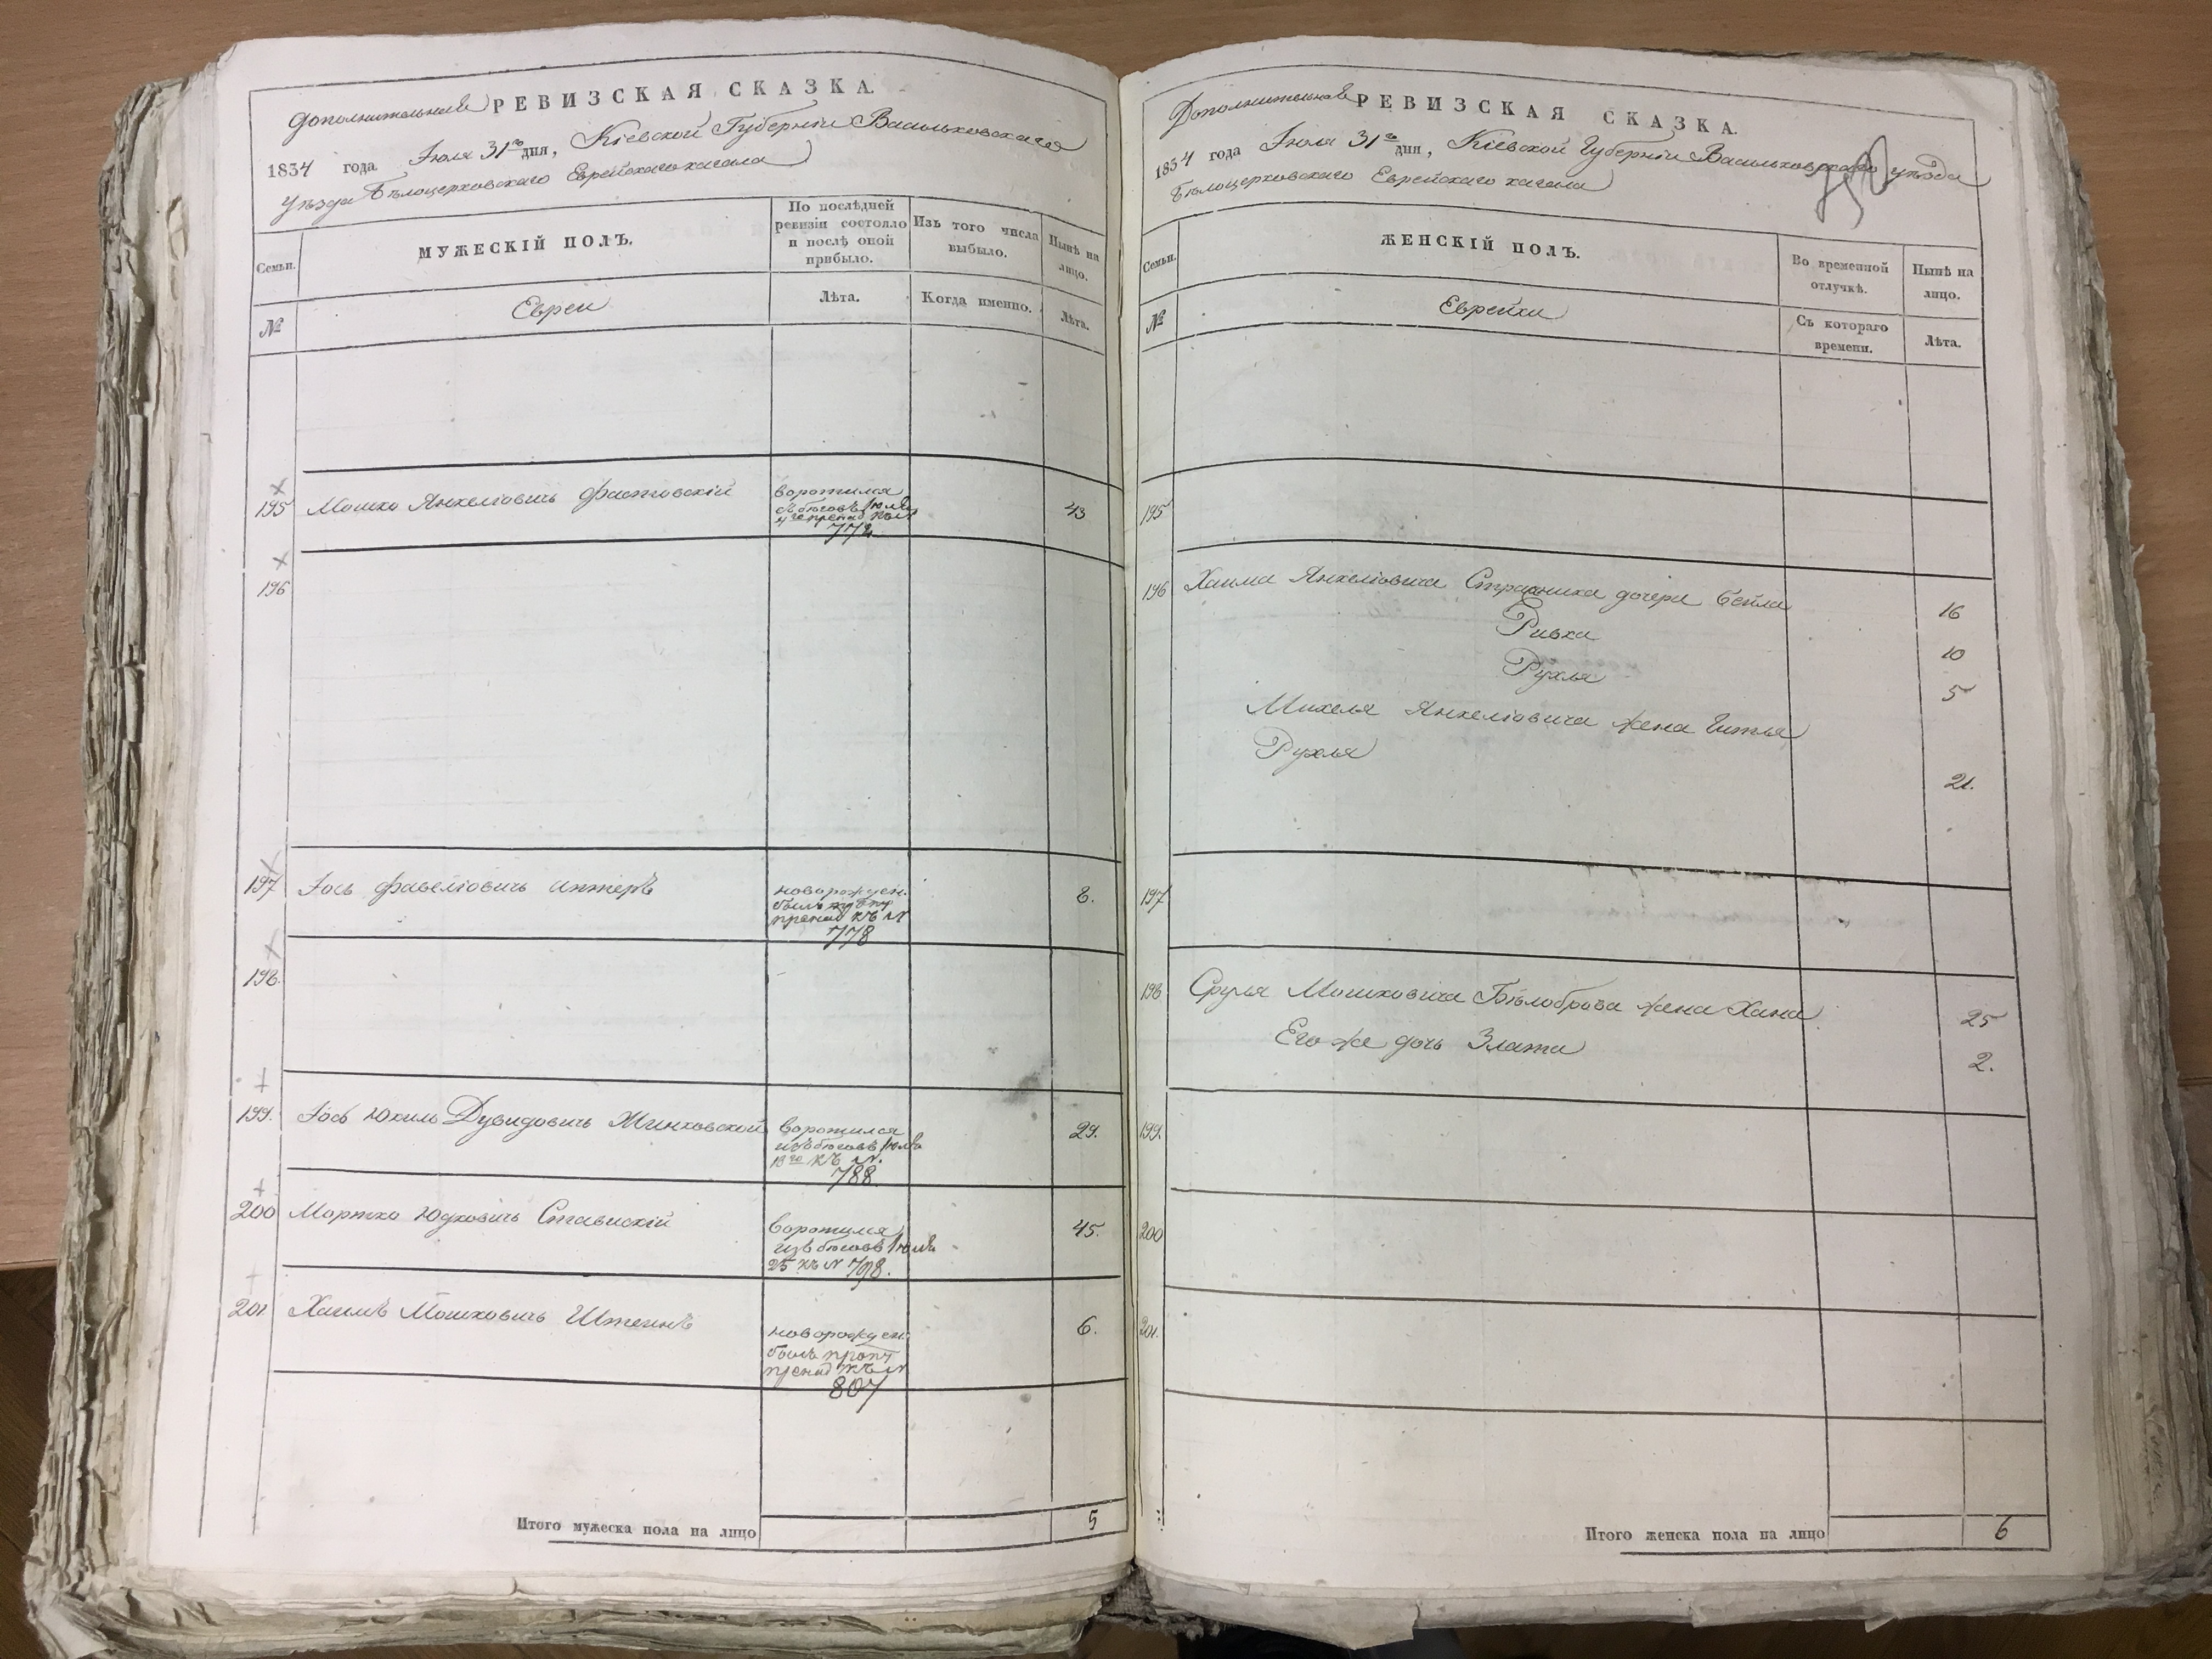 Дополнительная РЕВИЗСКАЯ СКАЗКА.
1834 года Іюля 31го дня, Кіевской Губерніи Васильковскаго
уѣзда Бѣлоцерковскаго Еврейскаго кагала
Семьи.
МУЖЕСКІЙ ПОЛЪ.
По послѣдней
ревизіи состояло
и послѣ оной
прибыло.
Изъ того числа
выбыло.
Нынѣ на
лицо.
№
Евреи
Лѣта.
Когда именно.
Лѣта.
195 Мошко Янкеліовичь Фастовскій
воротился
772
43
196
197 Іось Фавеліовичь
новорожден.
778
8.
198.
199. Іось Юхиль Дувидовичь Минковской
воротился
изъ бѣговъ Іюля
19го къ №.
788.
29.
200 Мортко Юдковичь Ставискій
воротился
изъ бѣговъ Іюля
25 къ № 798.
45.
201. Хаимъ Мошковичь Штеинъ
новорожден.
807
6.
Итого мужеска пола на лицо 5
Дополнительная РЕВИЗСКАЯ СКАЗКА.
1834 года Іюля 31го дня, Кіевской Губерніи Васильковскаго уѣзда
Бѣлоцерковскаго Еврейскаго кагала
Семьи.
ЖЕНСКІЙ ПОЛЪ.
Во временной
отлучкѣ.
Нынѣ на
лицо.
№
Еврейки
Съ котораго
времени.
Лѣта.
195
196 Хаима Янкеліовича Странника дочери Бейла 16
Ривка 10
Рухля 5
Михеля Янкеліовича жена Гитля
Рухля 21.
197
198 Сруля Мошковича Бѣлоброва жена Хана 25
Его же дочь Злата 2.
199.
200
201.
Итого женска пола на лицо 6